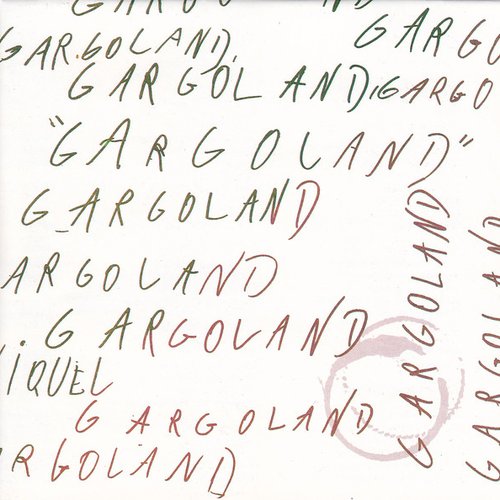 GARGOLAND
GARGOLAND,
GARGO
GARGOLAND,
GARGO
"GARGOLAND"
GARGOLAND
ARGOLAND
.GARGOLAND
IQUEL
GARGOLAND
RGOLAND
GARGOLAND
GARGOLAND